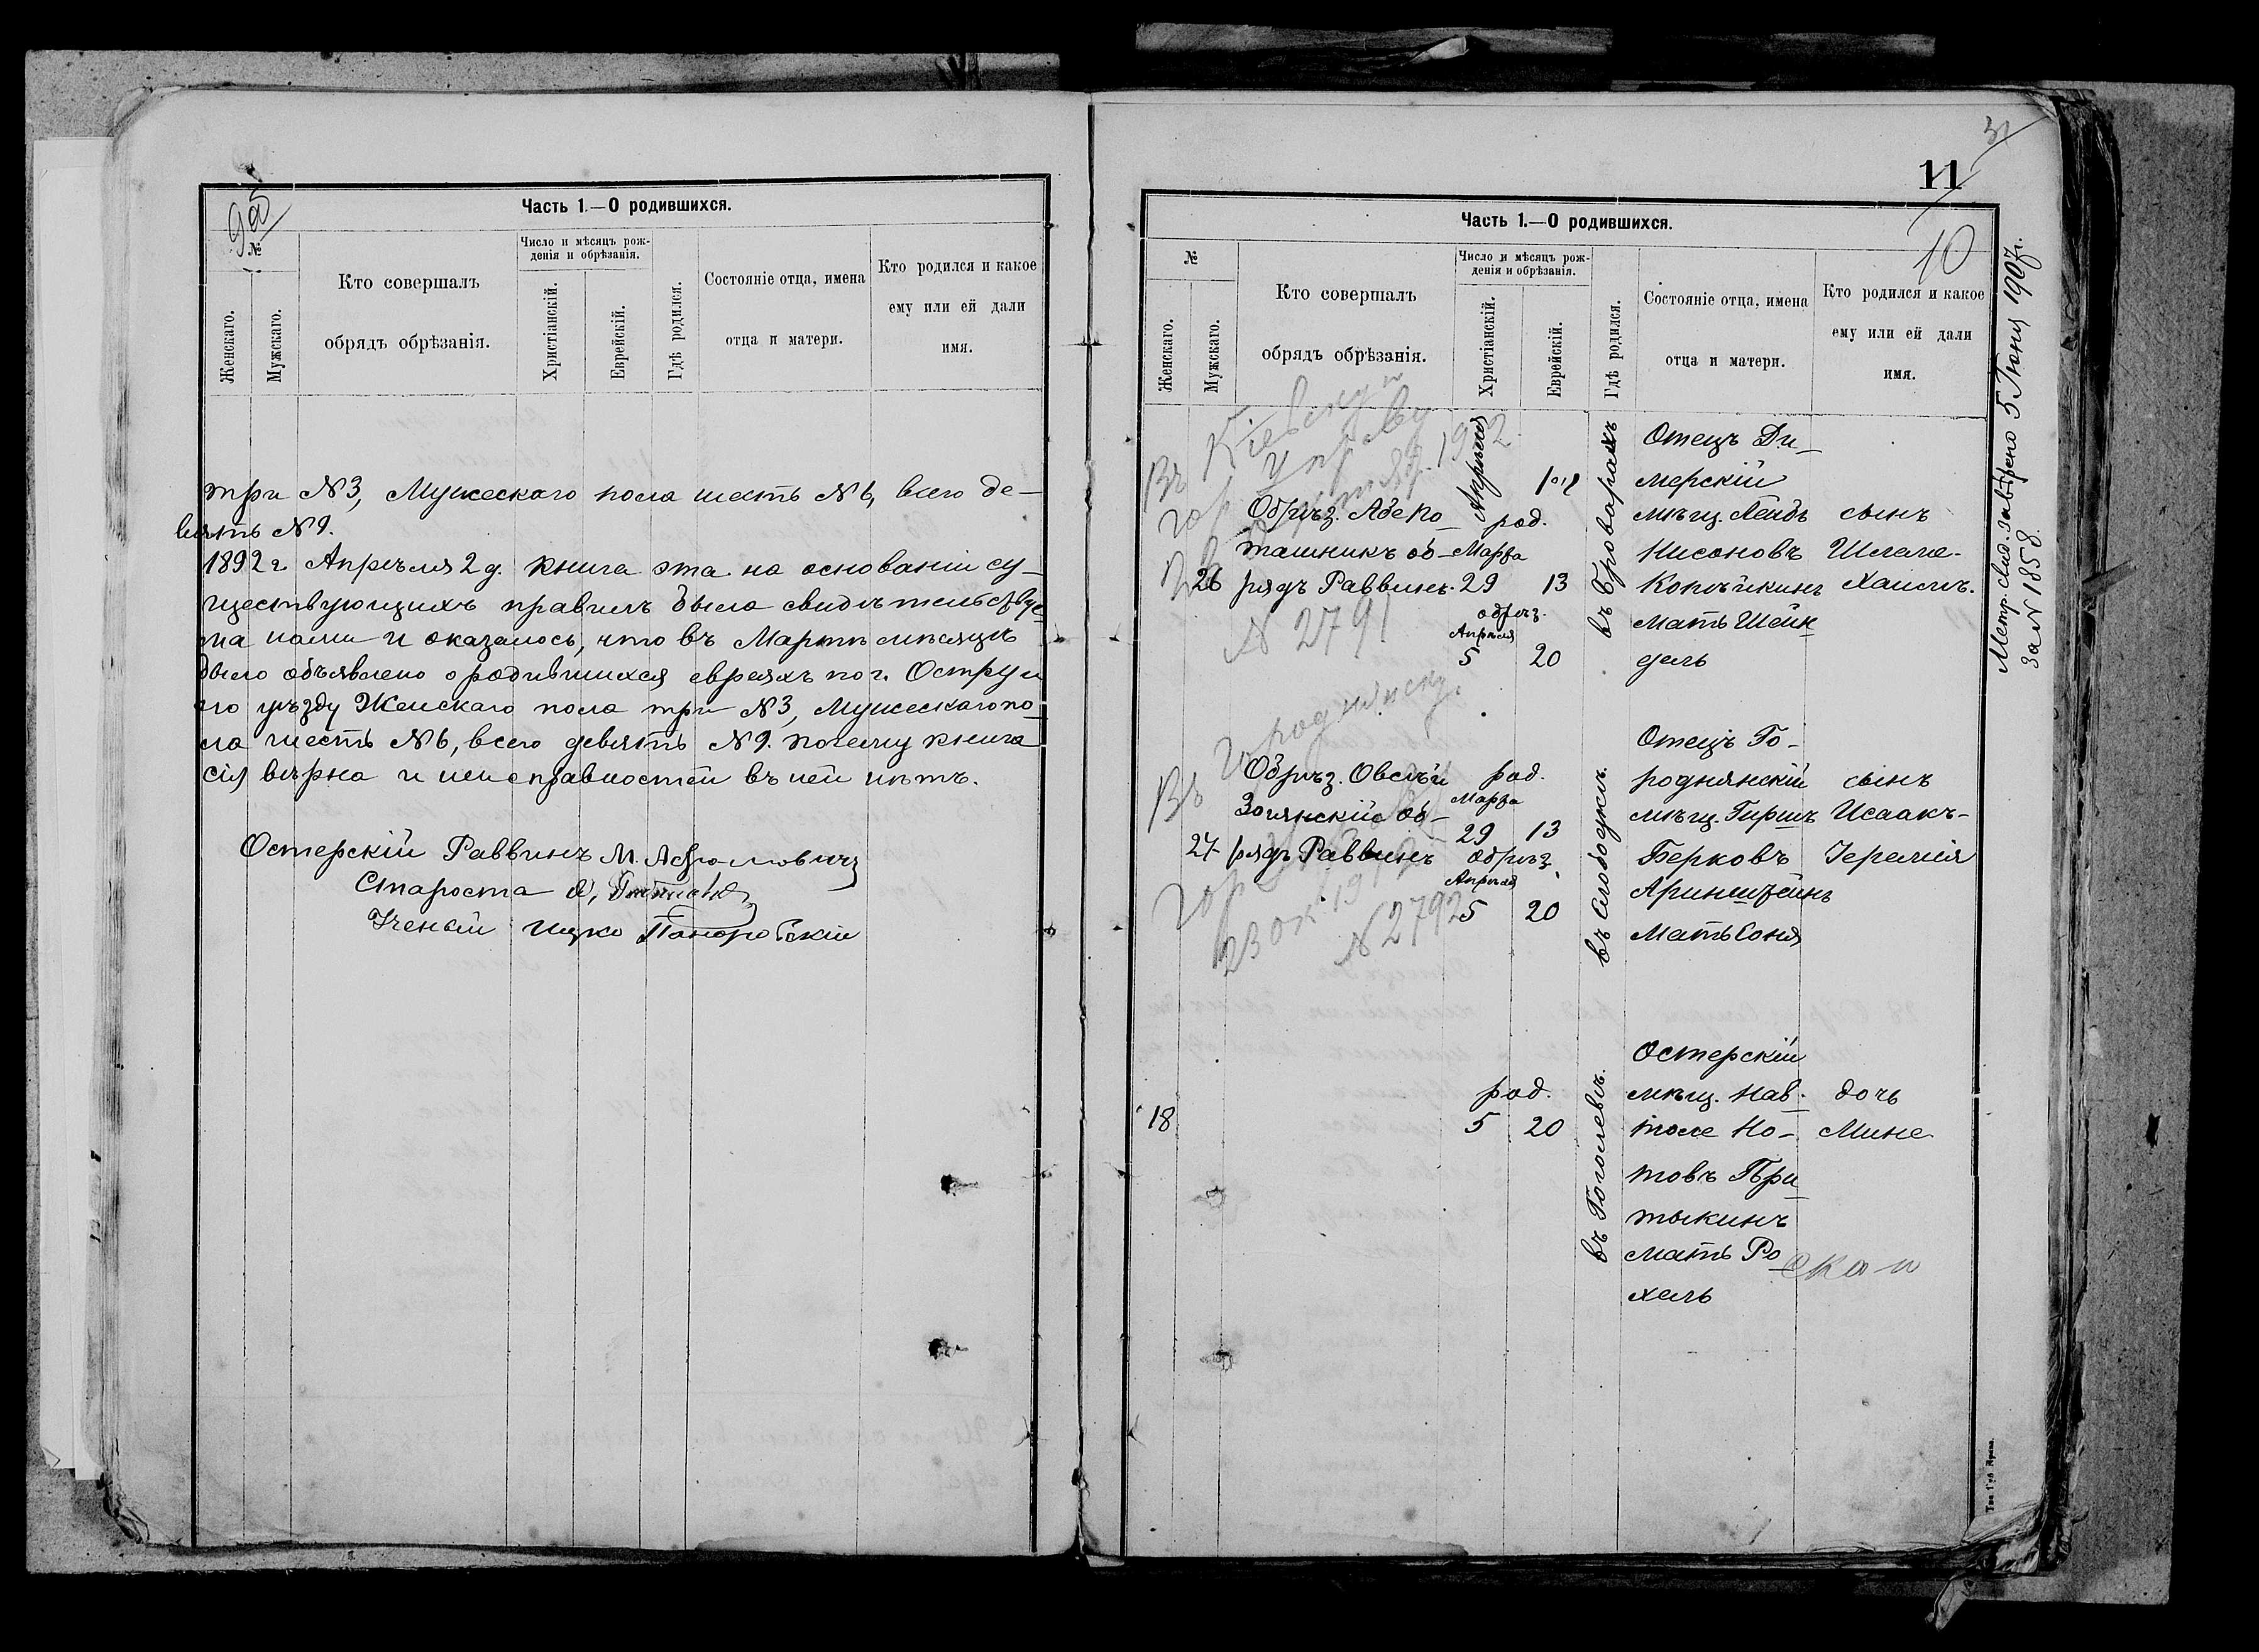 9об
Часть 1.—О родившихся.
№
Женскаго.
Мужскаго.
Кто совершалъ
обрядъ обрѣзанія.
Число и мѣсяцъ рож-
денія и обрѣзанія.
Христіанскій.
Еврейскій.
Гдѣ родился.
Состояніе отца, имена
отца и матери.
Кто родился и какое
ему или ей дали
имя.
три №3, Мужескаго пола шесть №6, всего де-
вять №9.
1892 г. Апрѣля 2 д. книга эта на основаніи су-
ществующихъ правилъ была свидѣтельствуе-
ма нами и оказалось, что въ Мартѣ мѣсяцѣ
было объявлено о родившихся евреяхъ по г. Остру и
его уѣзду Женскаго пола три №3, Мужескаго по-
ла шесть №6, всего девять №9. почему книга
сія вѣрна и неисправностей въ ней нѣтъ.
Остерскій Раввинъ М.
Староста
Ученый Ицко
11
10
Часть 1.—О родившихся.
№
Женскаго.
Мужскаго.
Кто совершалъ
обрядъ обрѣзанія.
Число и мѣсяцъ рож-
денія и обрѣзанія.
Христіанскій.
Еврейскій.
Гдѣ родился.
Состояніе отца, имена
отца и матери.
Кто родился и какое
ему или ей дали
имя.
Метр. свид. 5 Іюня 1907 г.
за № 1858.
Въ Кіевскую
управу
1912
Апрѣля
Отецъ Ди-
мерскій
Обрѣз. род. мѣщ. Лейбъ сынъ
ташникъ об- Марта Нисоновъ Шлема-
26 рядъ Раввинъ. 29 13 въ Броварахъ Копѣйкинъ Хаимъ.
№ 2791 обрѣз. мать Шейн-
Апрѣля
5 20 дель
Городнянскую
Отецъ Го-
Въ Обрѣз. Овсѣй род. роднянскій сынъ
Марта
Золянскій об- 29 13 мѣщ. Гиршъ Исаакъ-
27 рядъ Раввинъ обрѣз. въ Слободкѣ. Берковъ Іеремія
Апрѣля
5 20 Аринштейнъ
№ 2792
Мать Соня
Остерскій
род. мѣщ. Нав- дочь
18 5 20 въ Гоголевѣ. толе Но- Мине
товъ При-
тыкинъ
мать Ро-
хель
Тип. Губ. Правл.